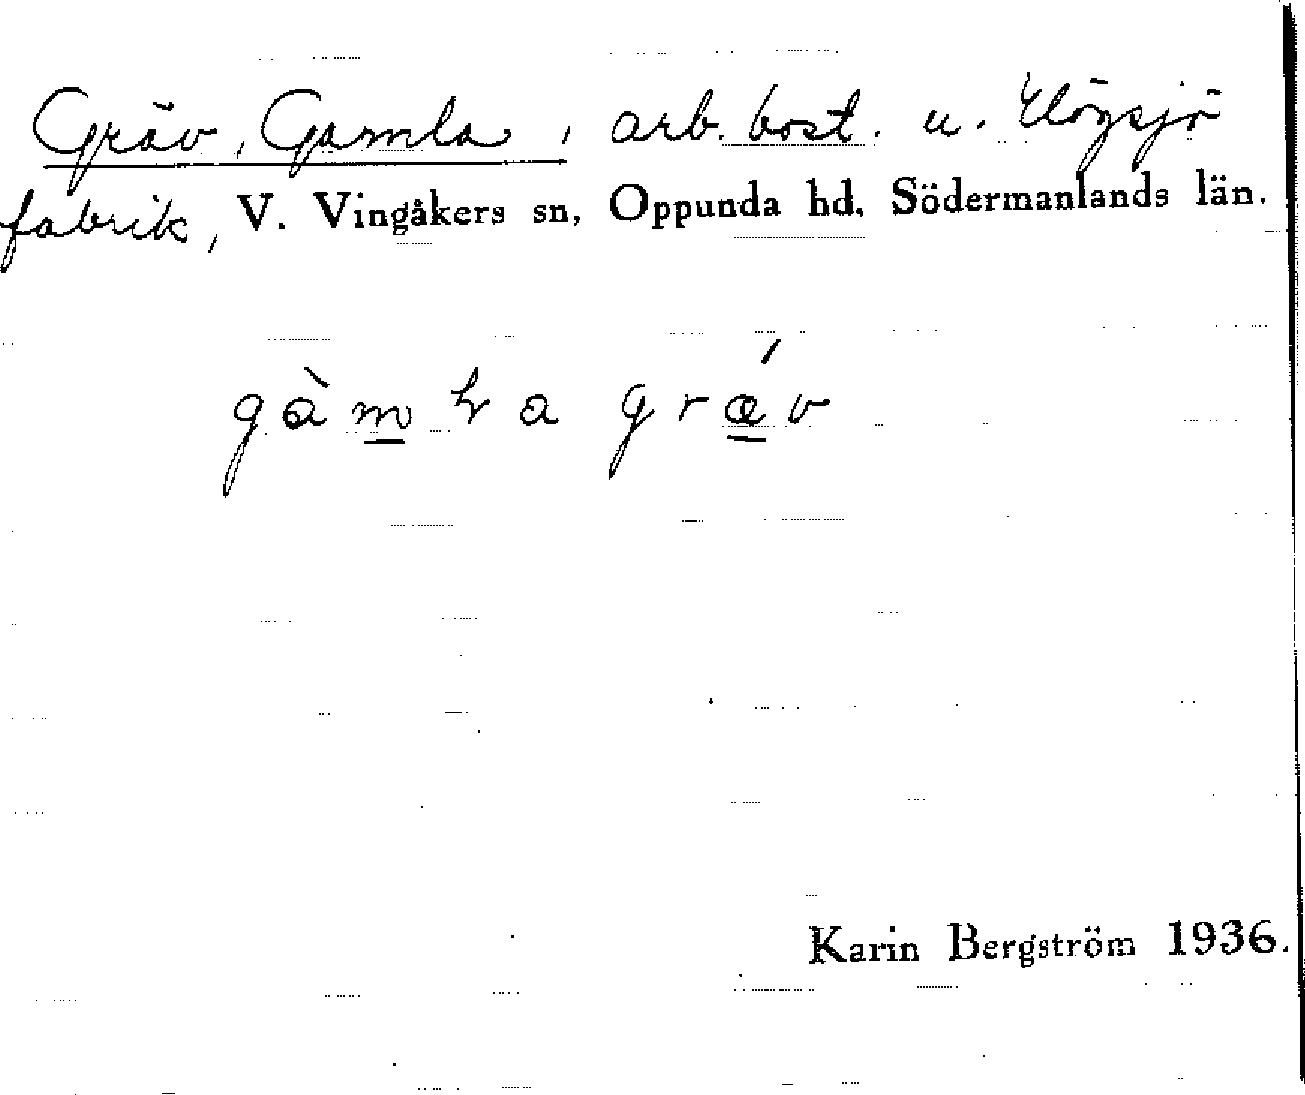 Gräv, Gamla, arb. bost. u. Högsjö
fabrik, V. Vingåkers sn, Oppunda hd, Södermanlands län.
gàmɽa græ´v
Karin Bergström 1936.